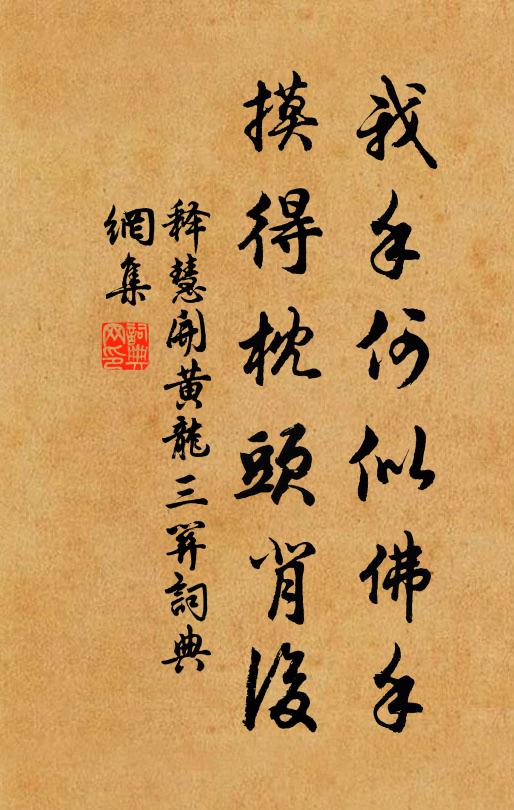 我手何似佛手
摸得枕頭背後
释慧開黄龍三關詞典
網集
詞典網印